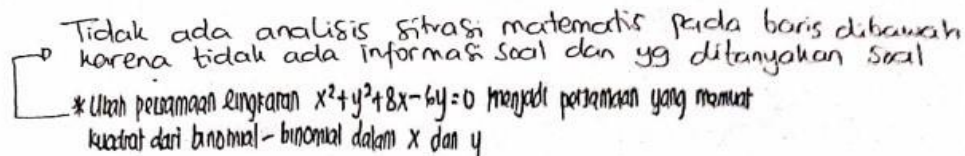 Tidak ada analisis sitrasi matematis pada baris dibawah
karena tidak ada informasi soal dan yg ditanyakan soal
* Ubah persamaan lingkaran x²+y²+8x-6y=0 menjadi persamaan yang memuat
kuadrat dari binomial-binomial dalam x dan y